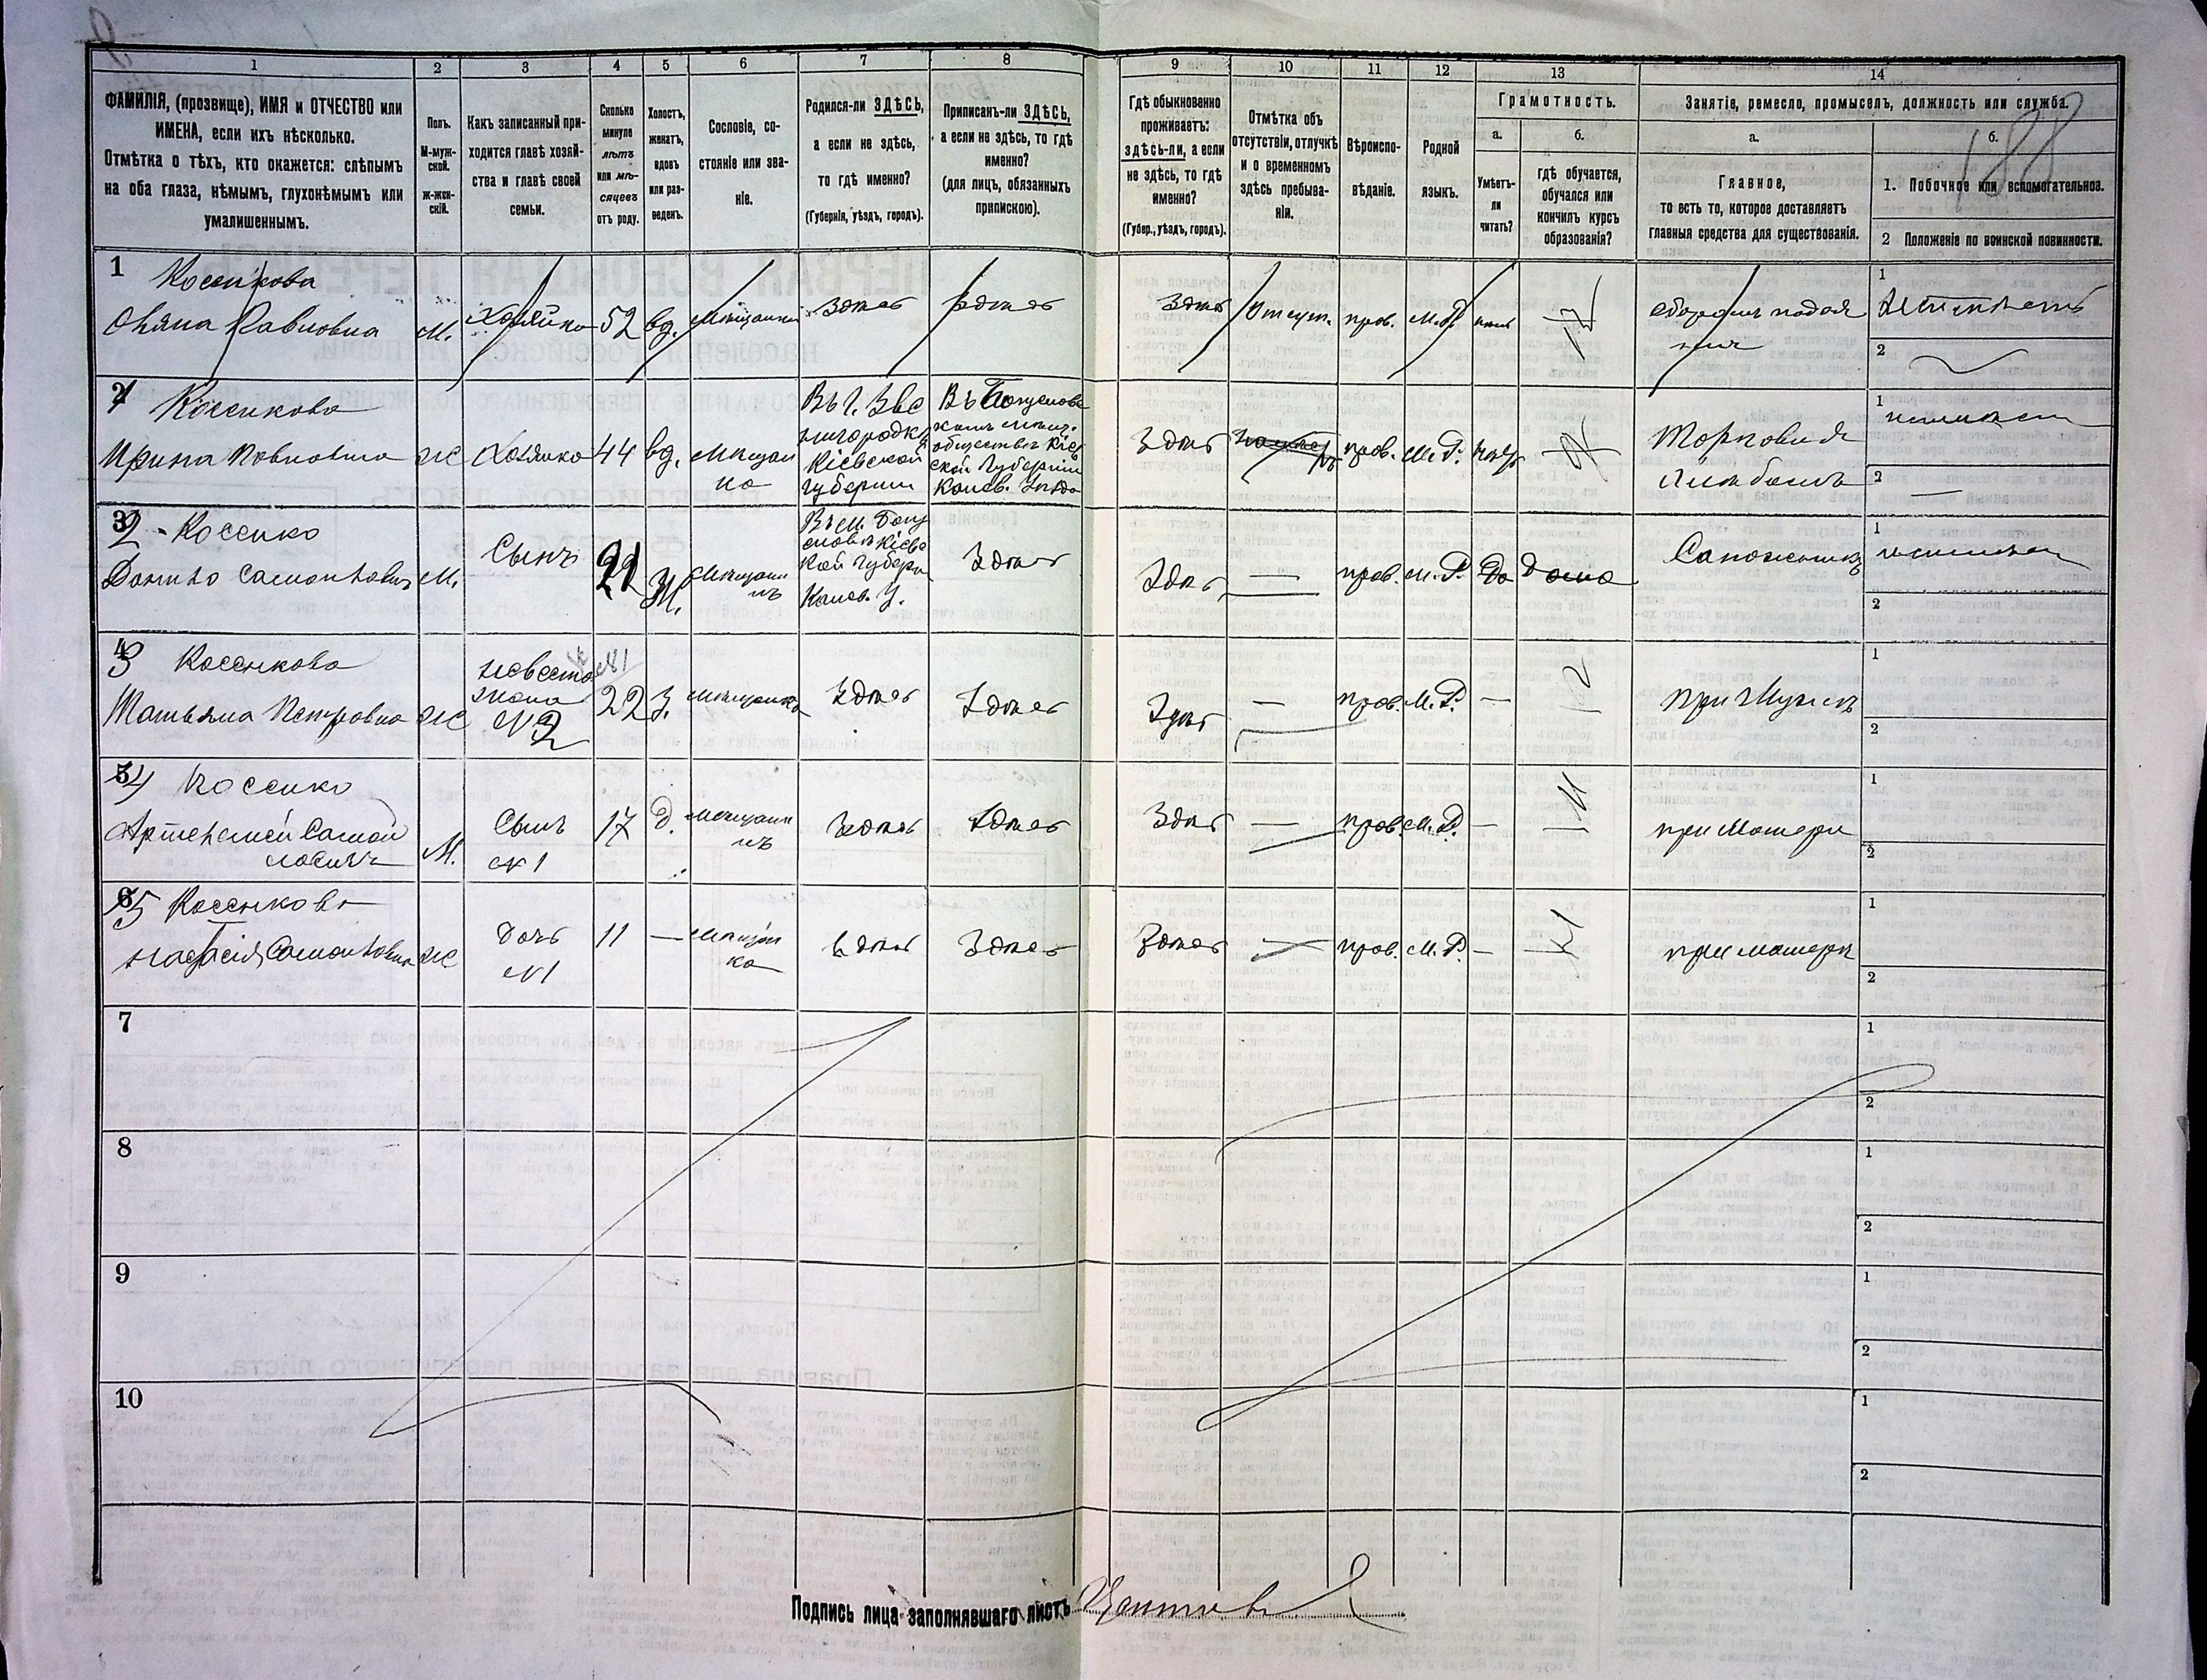 1 2 3 4 5 6 7 8 9 10 11 12 13 14
ФАМИЛІЯ, (прозвище), ИМЯ и ОТЧЕСТВО или
ИМЕНА, если ихъ нѣсколько.
Отмѣтка о тѣхъ, кто окажется: слѣпымъ
на оба глаза, нѣмымъ, глухонѣмымъ или
умалишеннымъ.
Полъ.
М-муж-
ской.
ж-жен-
скій.
Какъ записанный при-
ходится главѣ хозяй-
ства и главѣ своей
семьи.
Сколько
минуло
лѣтъ
или мѣ-
сяцевъ
отъ роду.
Холостъ,
женатъ,
вдовъ
или раз-
веденъ.
Сословіе, со-
стояніе или зва-
ніе.
Родился-ли ЗДѢСЬ,
а если не здѣсь,
то гдѣ именно?
(Губернія, уѣздъ, городъ).
Приписанъ-ли ЗДѢСЬ,
а если не здѣсь, то гдѣ
именно?
(для лицъ, обязанныхъ
припискою).
Гдѣ обыкновенно
проживаетъ:
здѣсь-ли, а если
не здѣсь, то гдѣ
именно?
(Губер., уѣздъ, городъ).
Отмѣтка объ
отсутствіи, отлучкѣ
и о временномъ
здѣсь пребыва-
ніи.
Вѣроиспо-
вѣданіе.
Родной
языкъ.
Грамотность.
а.
Умѣетъ-
ли
читать?
б.
гдѣ обучается,
обучался или
кончилъ курсъ
образованія?
Занятіе, ремесло, промыселъ, должность или служба.
а.
Главное,
то есть то, которое доставляетъ
главныя средства для существованія.
б.
188
1. Побочное или вспомогательное.
2 Положеніе по воинской повинности.
1
Косенкова
М. Хозяйка 52 вд. Мѣщанка здѣсь здѣсь здѣсь Отсут. пров. М.Р.
1
2
2
Косенкова
Ирина Павловна Ж Хозяйка 44 вд. Мѣщан
ка
Въ г. Зве
нигородкѣ
Кіевской
губерніи
Въ Богуслов
скомъ мѣщ.
обществѣ Кіев
ской Губерніи
Канев. Уѣзда
здѣсь пров. М.Р.
Торговля
хлѣбомъ
1
2 —
3 2 Косенко
Данило Самойловичъ М. Сынъ 21 Ж. Мѣщани
нъ
Въ м. Богу
славѣ Кіевс
кой Губерн
Канев. У.
Здѣсь Здѣсь — пров. М.Р. Да дома Сапожникъ
1
2
4 3 Косенкова
Татьяна Петровна Ж
невестка №1
жена
№2
22 З. Мѣщанка Здѣсь Здѣсь Здѣсь — пров. М.Р. — при Мужѣ
1
2
5 4 Косенко
Артемей Самой
ловичъ М.
Сынъ
№1
17 Х. Мѣщани
нъ
Здѣсь Здѣсь Здѣсь — пров. М.Р. — при Матери
1
2
6 5 Косенкова
Настасія Самойловна Ж
дочь
№1
11 — Мѣщан
ка
Здѣсь Здѣсь Здѣсь — пров. М.Р. — при матери
1
2
7
1
2
8
1
2
9
1
2
10
1
2
Подпись лица заполнявшаго листъ